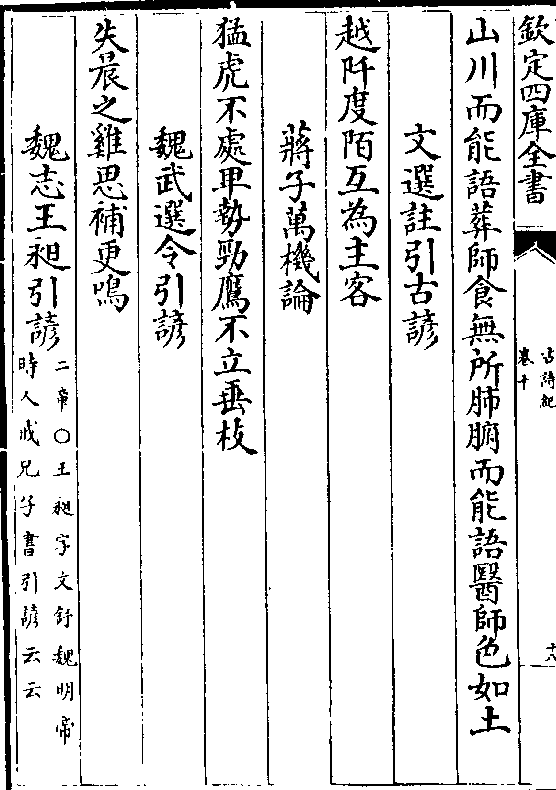 欽定四庫全書
古詩紀
卷十
十六
山川而能語葬師食無所肺腑而能語醫師色如土
文選註引古諺
越阡度陌互為主客
蔣子萬機論
猛虎不處卑勢勁鷹不立垂枝
魏武選令引諺
失晨之雞思補更鳴
魏志王昶引諺
二帝○王昶字文舒魏明帝
時人戒兄子書引諺云云